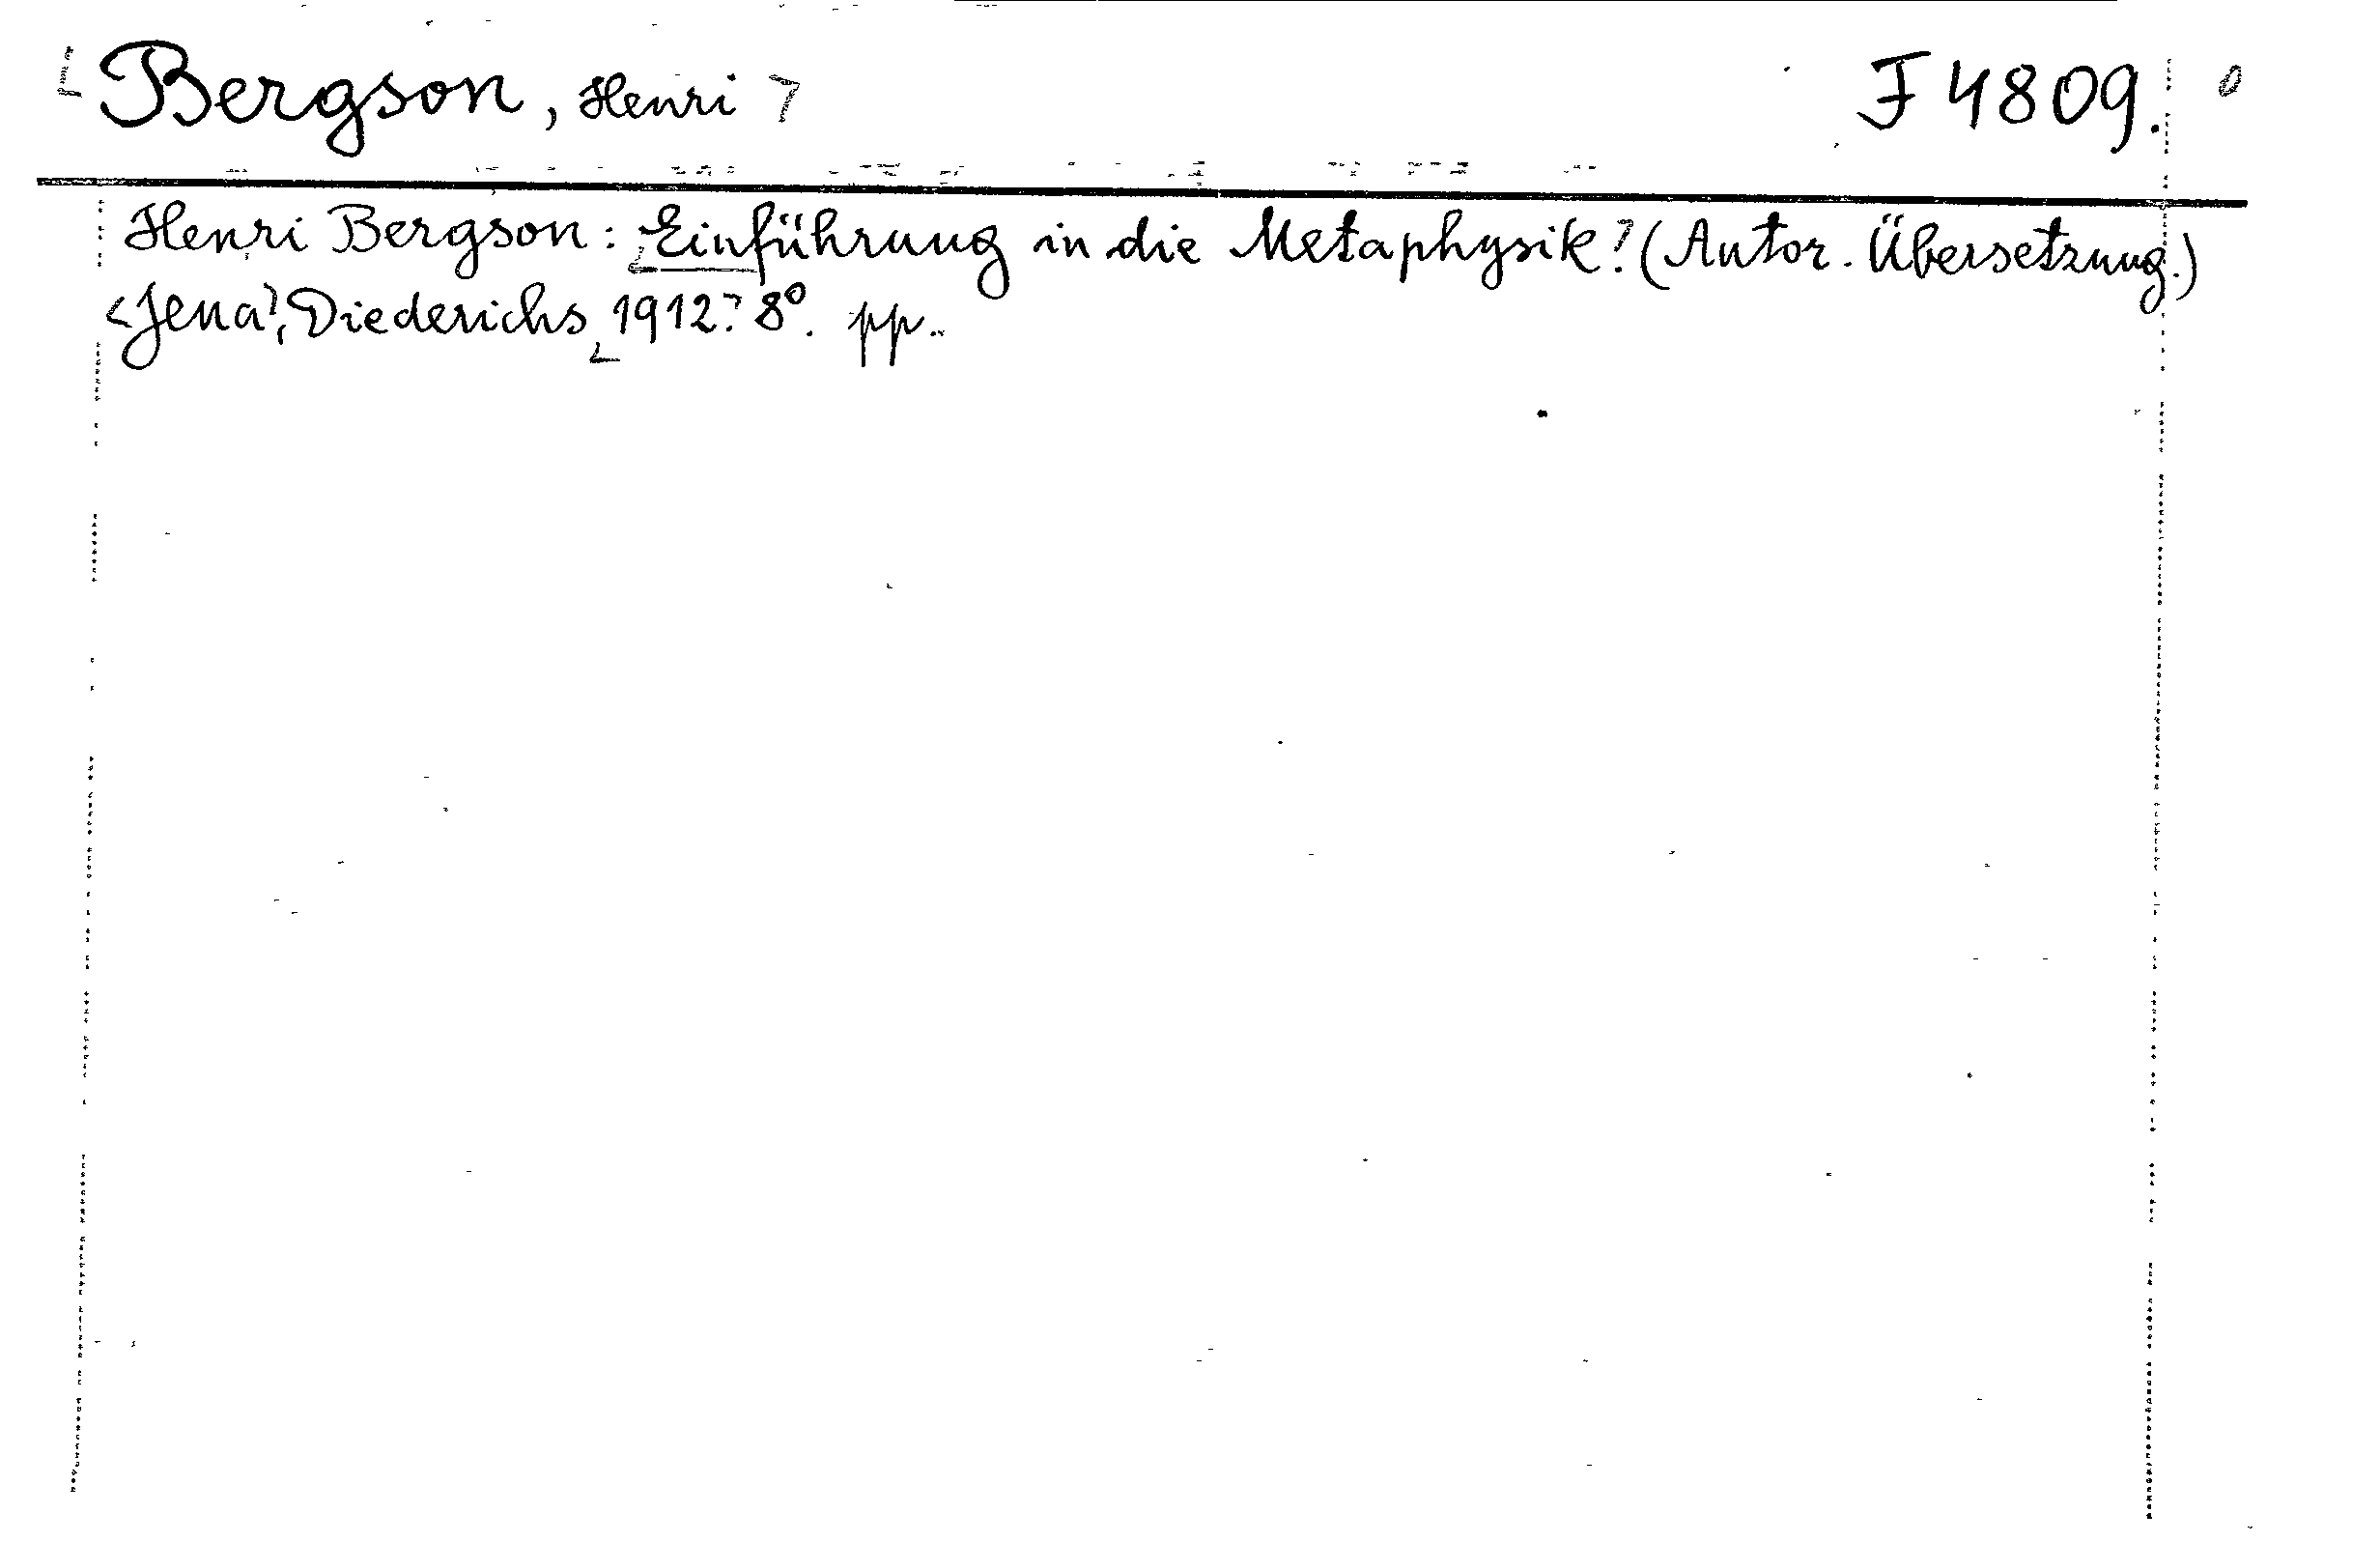 Bergson, Henri F 4809.
Henri Bergson: Einführung in die Metaphysik. (Autor. Übersetzung.)
Jena, Diederichs, 1912. 8°. pp..